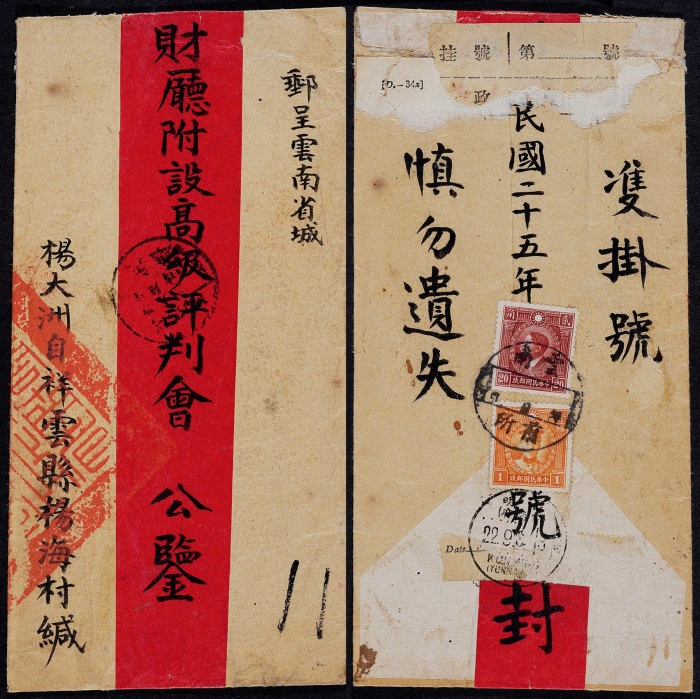 郵呈雲南省城
財廳附設高級評判會 公鑒
楊大洲自祥雲縣楊海村緘
11
挂號 第 號
[D.—34x]
政
隻掛號
民國二十五年
號
封
慎勿遺失
角 貳
20 中華民國郵政 20
1 中華民國郵政 1
雲南
所前
22.9
Date
11